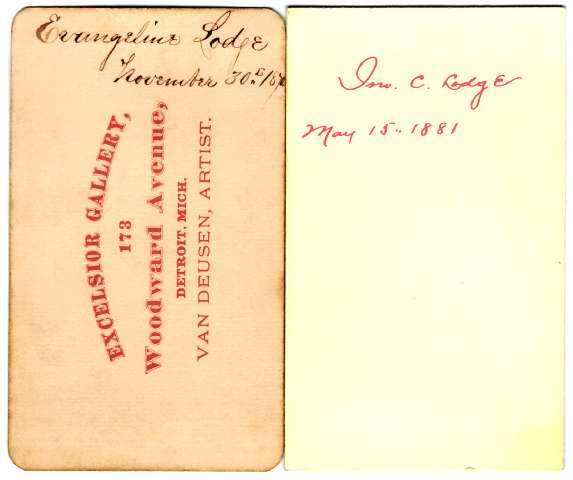 Evangeline Lodge
November 30th
EXCELSIOR GALLERY,
173
Woodward Avenue,
DETROIT, MICH.
VAN DEUSEN, ARTIST.
Jno. C. Lodge
May 15.. 1881